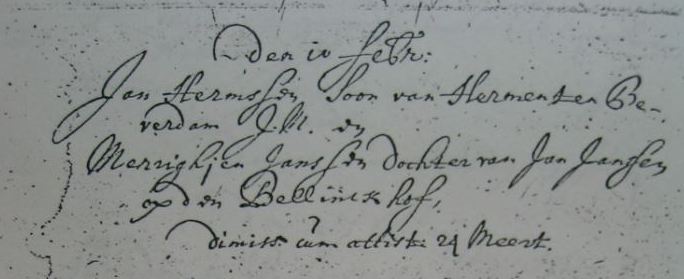 Den 10 febr:
Jan Hermssen Soon van Herm ten Be-
verdam J.M. en
Merrighjen Janssen dochter van Jan Janssen
op den Bellinckhof,
dimiss. cum attist: 24 Meert.